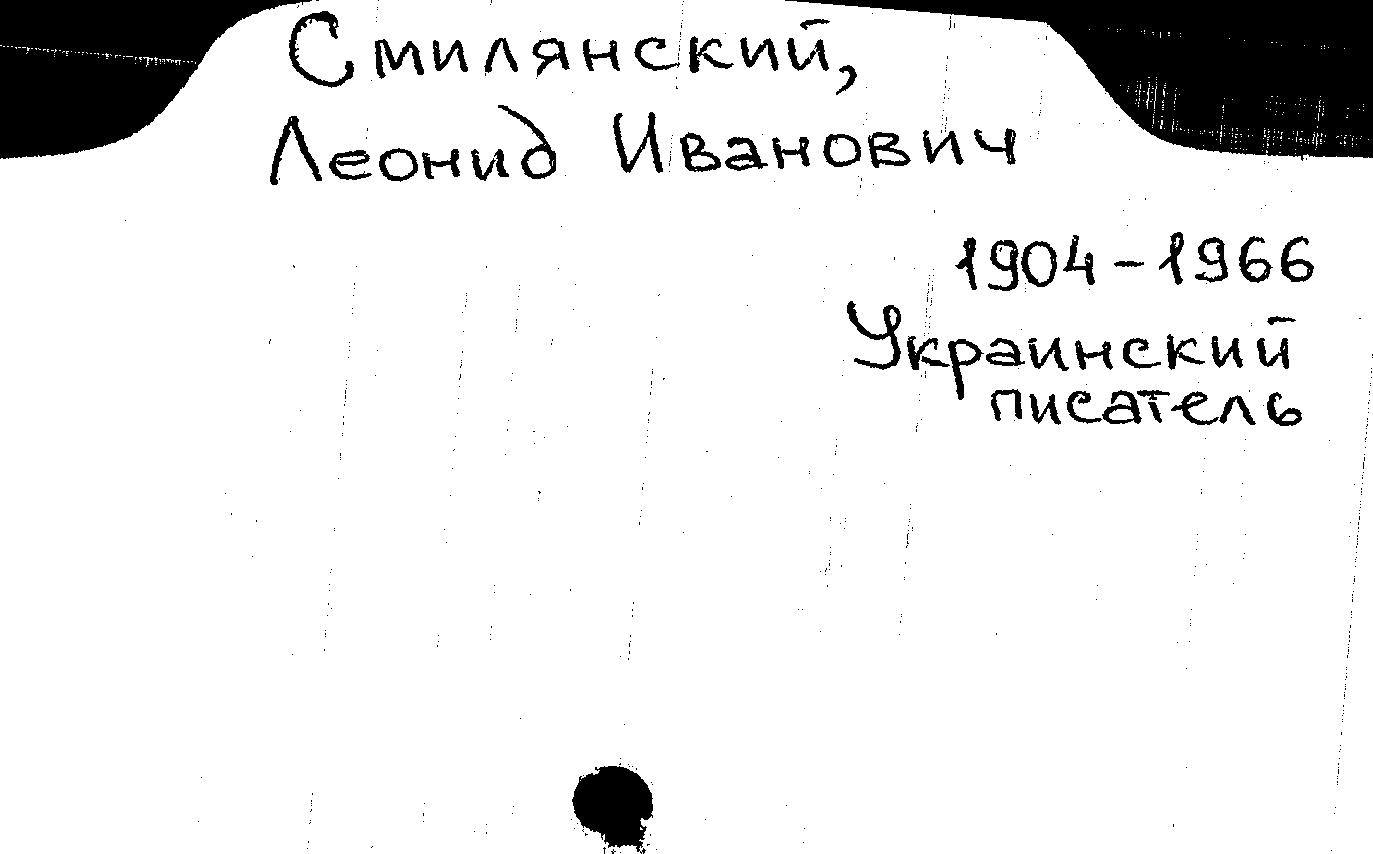 Смилянский,
Леонид Иванович
1904-1966
Украинский
писатель